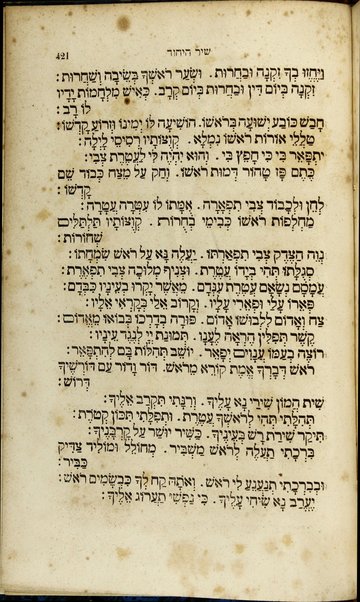 421 שיר היחוד
וַיֶּחֱזוּ בְךָ זִקְנָה וּבַחֲרוּת. וּשְׂעַר רֹאשְׁךָ בְּשֵׂיבָה וְשַׁחֲרוּת:
זִקְנָה בְּיוֹם דִּין וּבַחֲרוּת בְּיוֹם קְרָב. כְּאִישׁ מִלְחָמוֹת יָדָיו
לוֹ רָב:
חָבַשׁ כּוֹבַע יְשׁוּעָה בְּרֹאשׁוֹ. הוֹשִׁיעָה לּוֹ יְמִינוֹ וּזְרוֹעַ קָדְשׁוֹ:
טַלְלֵי אוֹרוֹת רֹאשׁוֹ נִמְלָא. קְוֻצּוֹתָיו רְסִיסֵי לָיְלָה:
יִתְפָּאֵר בִּי כִּי חָפֵץ בִּי. וְהוּא יִהְיֶה לִּי לַעֲטֶרֶת צְבִי:
כֶּתֶם פָּז טָהוֹר דְּמוּת רֹאשׁוֹ. וְחַק עַל מֵצַח כְּבוֹד שֵׁם
קָדְשׁוֹ:
לְחֵן וּלְכָבוֹד צְבִי תִפְאָרָה. אֻמָּתוֹ לוֹ עִטְּרָה עֲטָרָה:
מַחְלְפוֹת רֹאשׁוֹ כְּבִימֵי בְחֻרוֹת. קְוֻצּוֹתָיו תַּלְתַּלִּים
שְׁחוֹרוֹת:
נְוֵה הַצֶּדֶק צְבִי תִפְאַרְתּוֹ. יַעֲלֶה נָּא עַל רֹאשׁ שִׂמְחָתוֹ:
סְגֻלָּתוֹ תְּהִי בְיָדוֹ עֲטֶרֶת. וּצְנִיף מְלוּכָה צְבִי תִפְאֶרֶת:
עֲמוּסִים נְשָׂאָם עֲטֶרֶת עִנְּדָם. מֵאֲשֶׁר יָקְרוּ בְעֵינָיו כִּבְּדָם:
פְּאֵרוֹ עָלַי וּפְאֵרִי עָלָיו. וְקָרוֹב אֵלַי בְּקָרְאִי אֵלָיו:
צַח וְאָדוֹם לִלְבוּשׁוֹ אָדוֹם. פּוּרָה בְדָרְכוֹ בְּבוֹאוֹ מֵאֱדוֹם:
קֶשֶׁר תְּפִלִּין הֶרְאָה לֶעָנָו. תְּמוּנַת יְיָ לְנֶגֶד עֵינָיו:
רוֹצֶה בְעַמּוֹ עֲנָוִים יְפָאֵר. יוֹשֵׁב תְּהִלּוֹת בָּם לְהִתְפָּאֵר:
רֹאשׁ דְּבָרְךָ אֱמֶת קוֹרֵא מֵרֹאשׁ. דּוֹר וָדוֹר עַם דּוֹרֶשְׁךָ
דְּרוֹשׁ:
שִׁית הֲמוֹן שִׁירַי נָא עָלֶיךָ. וְרִנָּתִי תִקְרַב אֵלֶיךָ:
תְּהִלָּתִי תְּהִי לְרֹאשְׁךָ עֲטֶרֶת. וּתְפִלָּתִי תִּכּוֹן קְטֹרֶת:
תִּיקַר שִׁירַת רָשׁ בְּעֵינֶיךָ. כַּשִּׁיר יוּשַׁר עַל קָרְבָּנֶיךָ:
בִּרְכָתִי תַעֲלֶה לְרֹאשׁ מַשְׁבִּיר. מְחוֹלֵל וּמוֹלִיד צַדִּיק
כַּבִּיר:
וּבְבִרְכָתִי תְנַעֲנַע לִי רֹאשׁ. וְאוֹתָהּ קַח לְךָ כִּבְשָׂמִים רֹאשׁ:
יֶעֱרַב נָא שִׂיחִי עָלֶיךָ. כִּי נַפְשִׁי תַעֲרוֹג אֵלֶיךָ: